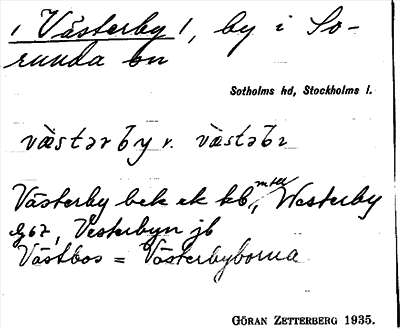 1 Västerby 1, by i So-
runda sn
Sotholms hd, Stockholms l.
västərby v. västəbr
Västerby bek ek kb, mtll Westerby
Vesterbyn jb
Västbos = Västerbyborna
GÖRAN ZETTERBERG 1935.